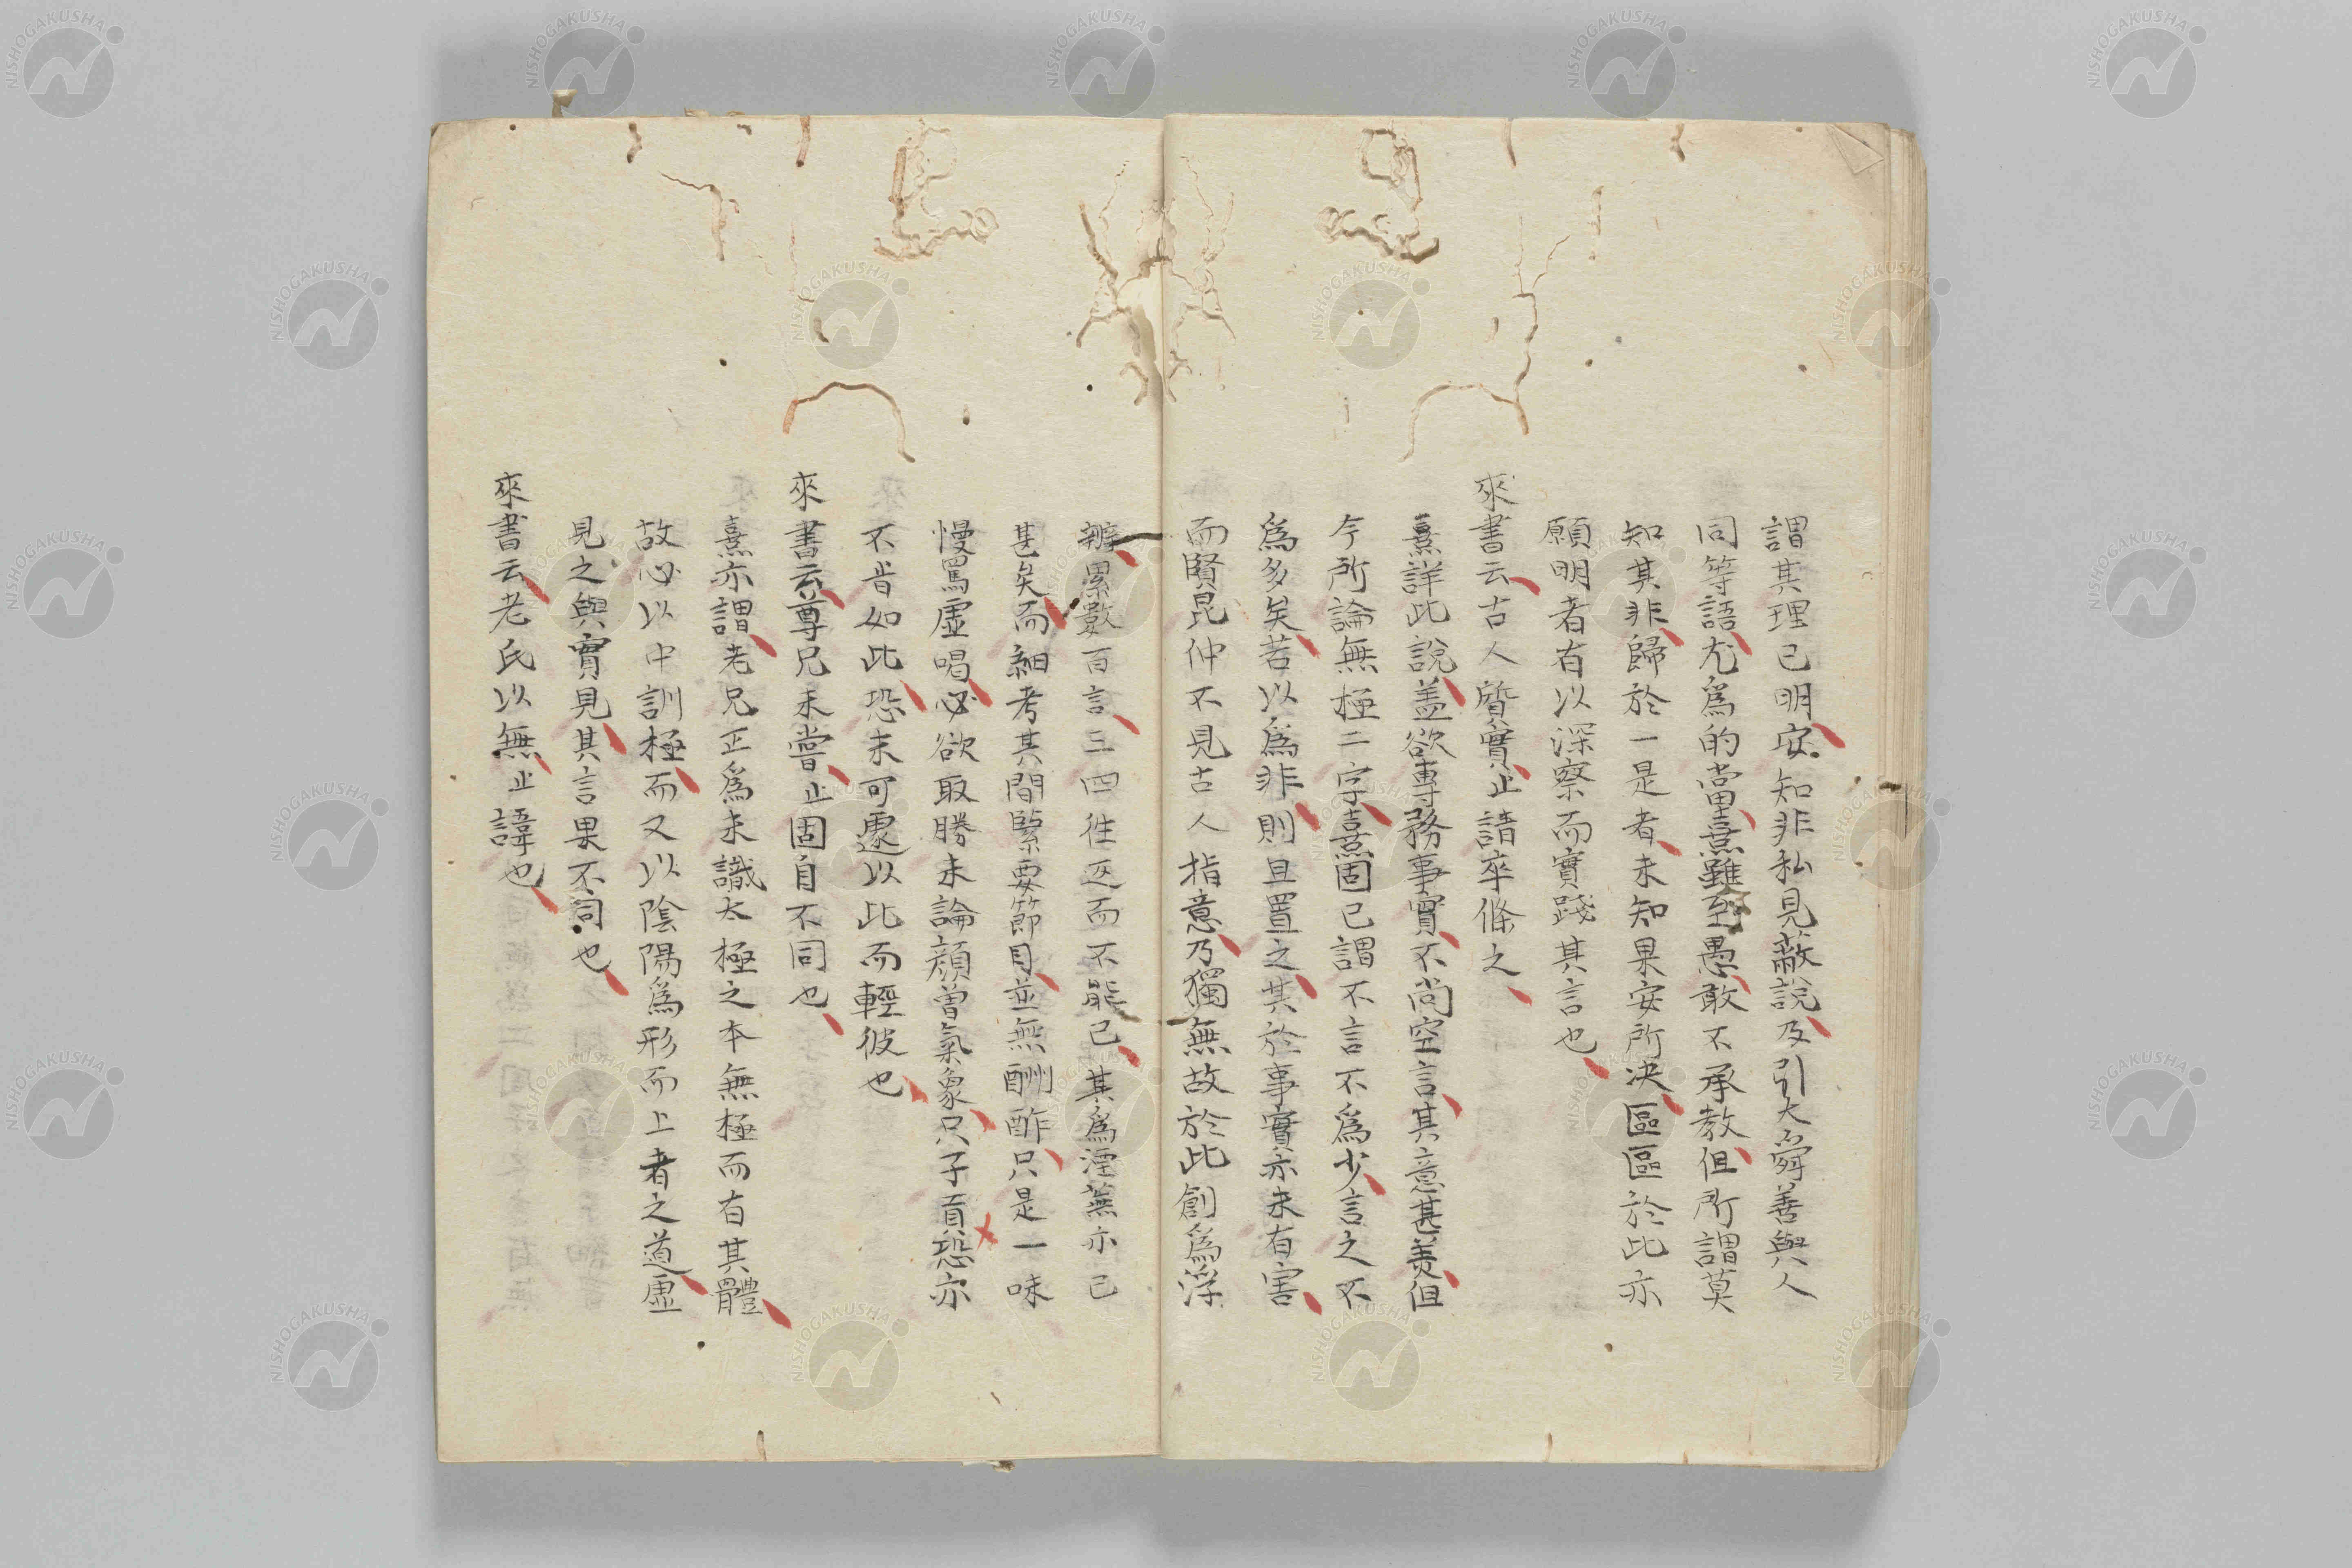 謂其理已明安知非私見蔽說及引大舜善與人
同等語尤為的當熹雖至愚敢不承教但所謂莫
知其非歸於一是者未知果安所決區區於此亦
願明者有以深察而實踐其言也
來書云古人質實止請卒條之
熹詳此說蓋欲專務事實不尚空言其意甚美但
今所論無極二字熹固已謂不言不為少言之不
為多矣若以為非則且置之其於事實亦未有害
而賢昆仲不見古人指意乃獨無故於此創為浮
辨累數百言三四徃返而不能已其為湮蕪亦已
甚矣而細考其間緊要節目並無酬酢只是一味
慢罵虛喝必欲取勝未論顏曾氣象只子貢恐亦
不肯如此恐未可遽以此而輕彼也
來書云尊兄未嘗止固自不同也
熹亦謂老兄正為未識太極之本無極而有其體
故必以中訓極而又以陰陽為形而上者之道虛
見之與實見其言果不同也
來書云老氏以無止諱也
NISHOGAKUSHA